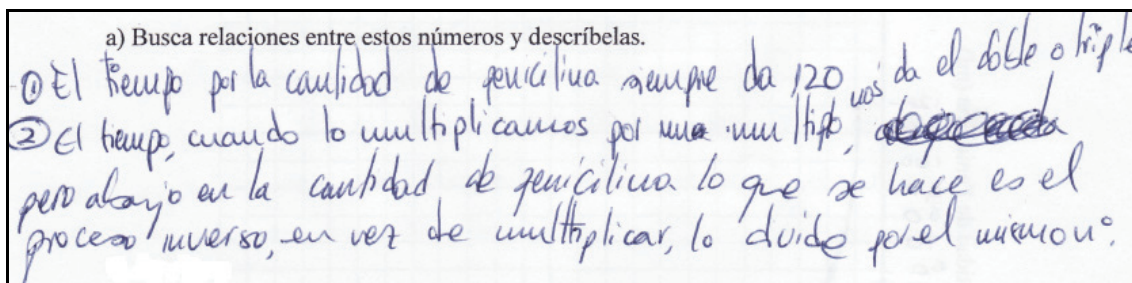 a) Busca relaciones entre estos números y descríbelas.
① El tiempo por la cantidad de penicilina siempre da 120
② El tiempo, cuando lo multiplicamos por un multiplo, nos da el doble o triple
pero abajo en la cantidad de penicilina lo que se hace es el
proceso inverso, en vez de multiplicar, lo divide por el mismo nº.